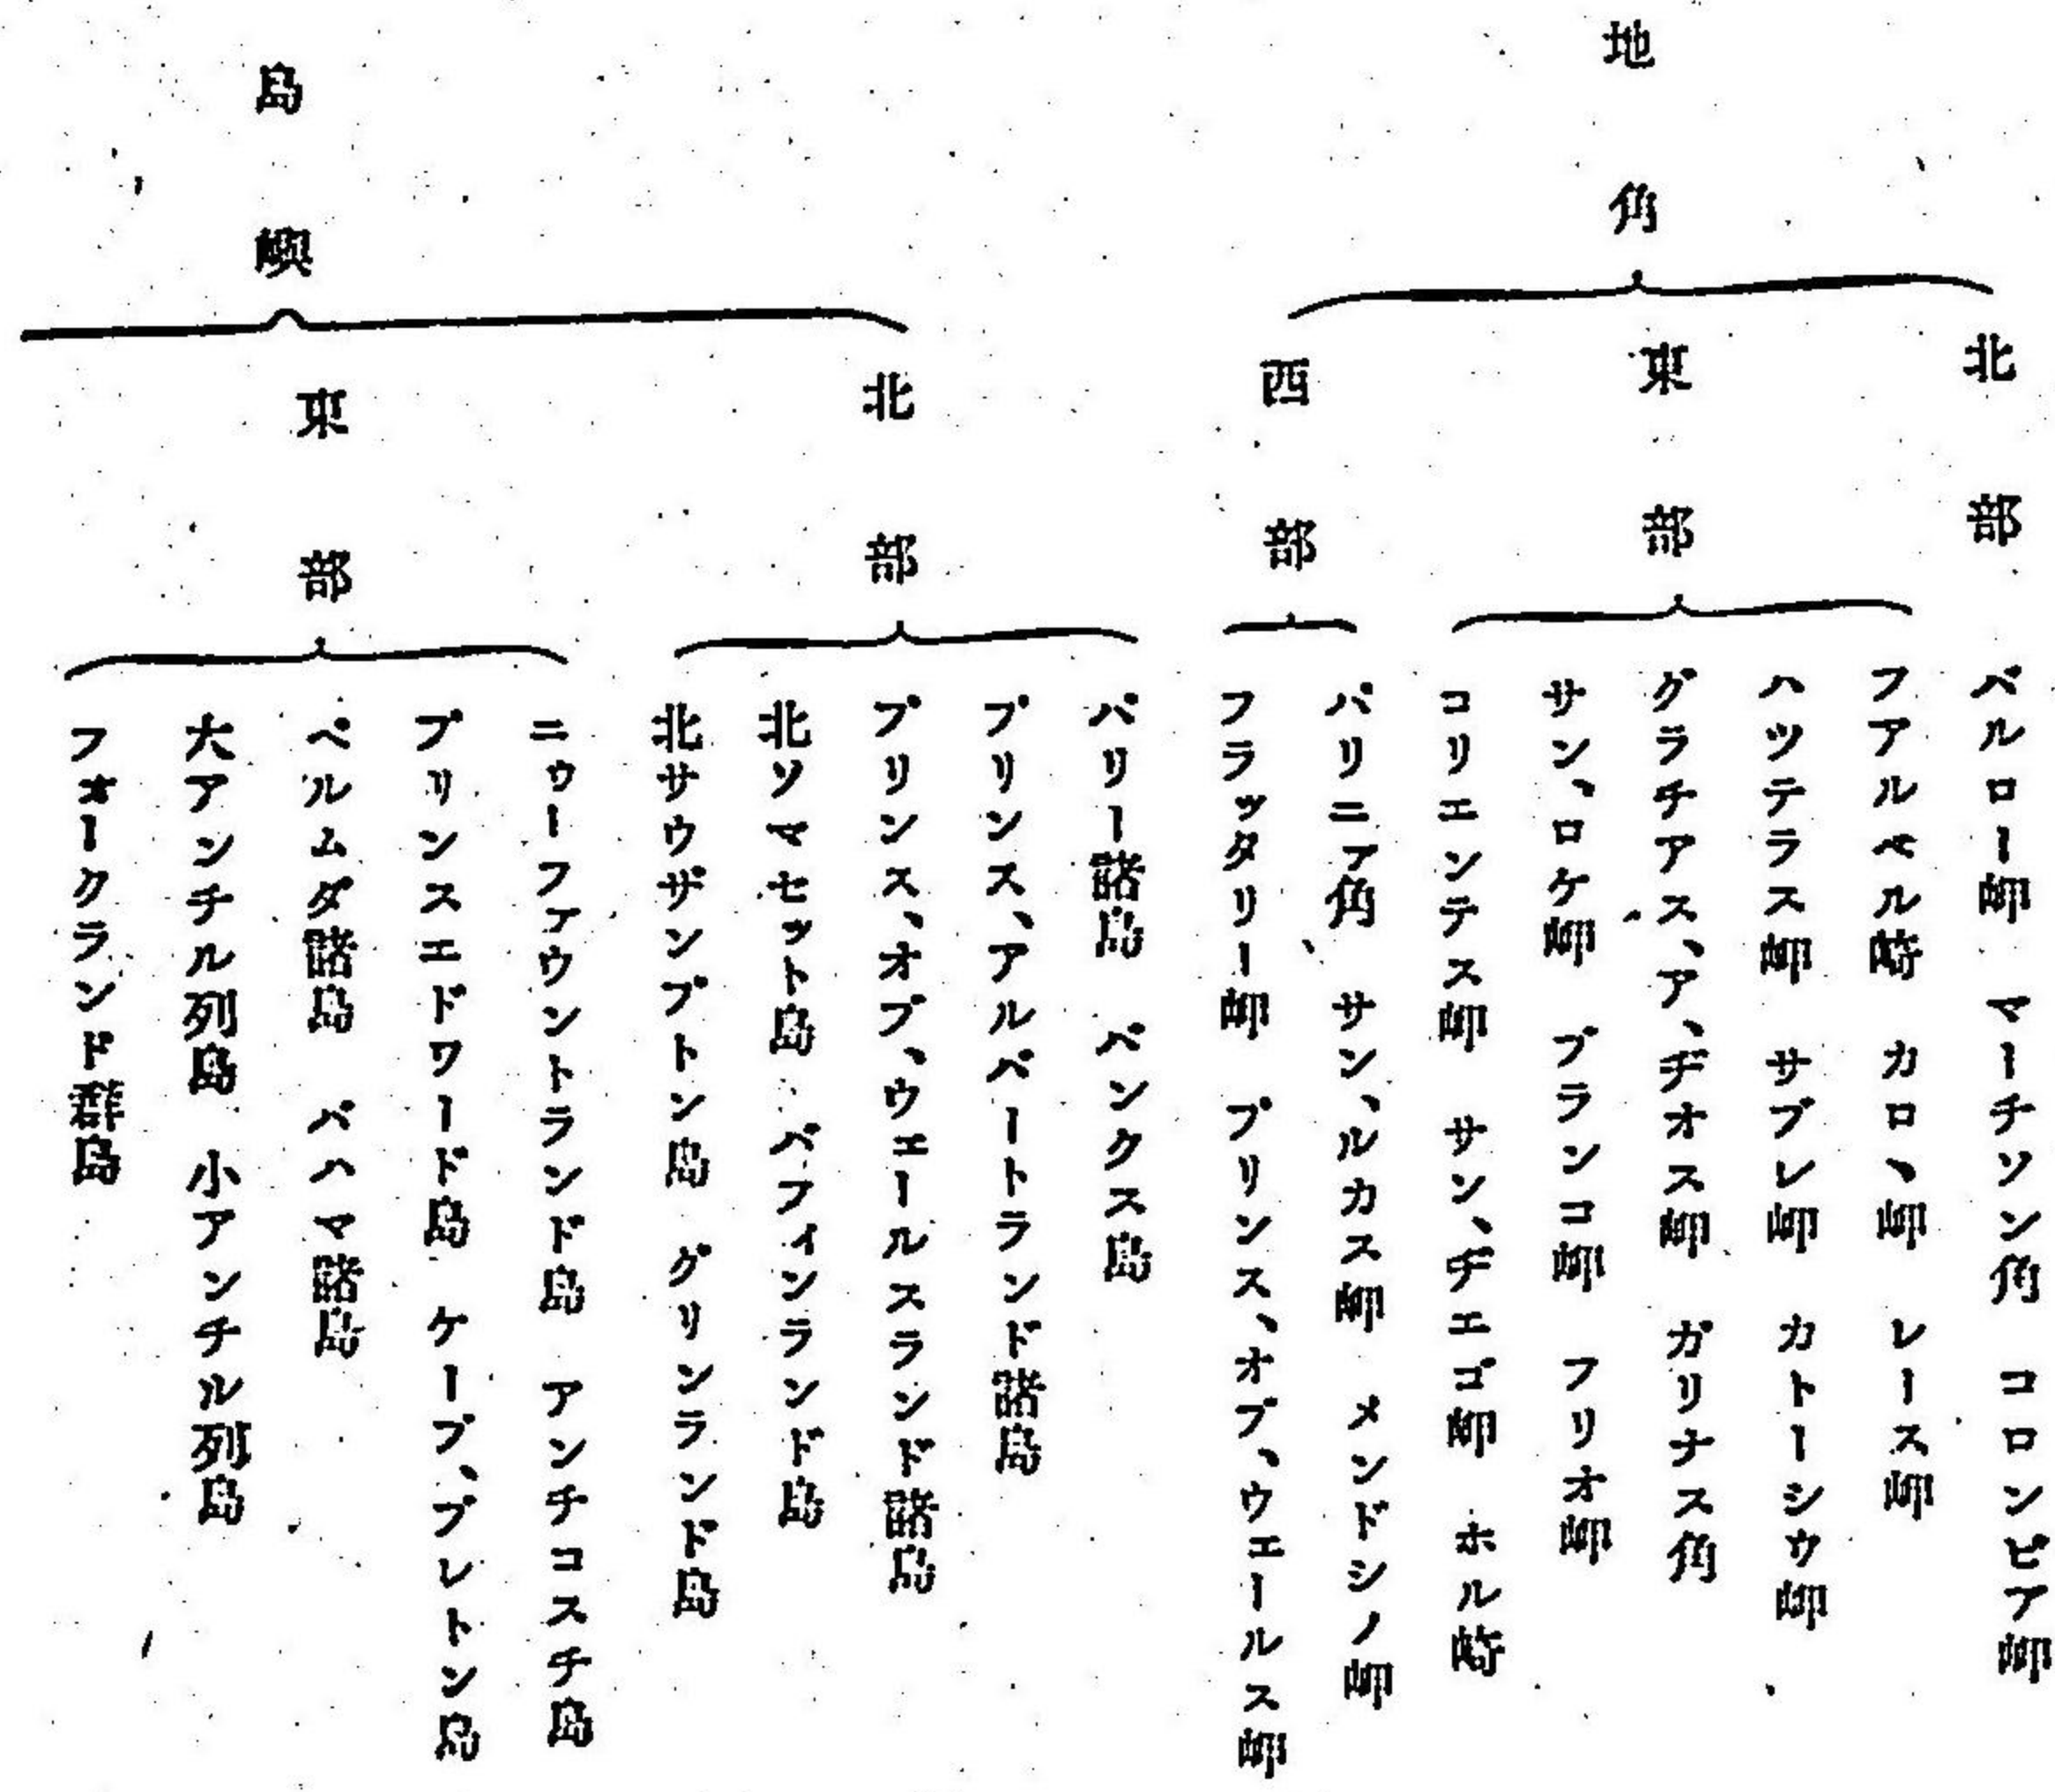 地角
北部
バルロー岬 マーチソン角 コロンビア岬
東部
フアルベル崎 カロヽ岬 レース岬
ハツテラス岬 サブレ岬 カトーシウ岬
グラチアス、ア、ヂオス岬 ガリナス角
サン、ロケ岬 ブランコ岬 フリオ岬
コリエンテス岬 サン、ヂエゴ岬 ホル崎
西部
パリニア角 サン、ルカス岬 メンドシノ岬
フラッタリー岬 プリンス、オブ、ウエールス岬
島嶼
北部
パリー諸島 バンクス島
プリンス、アルバートランド諸島
プリンス、オブ、ウエールスランド諸島
北ソマセット島 バフィンランド島
北サウザンプトン島 グリンランド島
東部
ニゥーファウントランド島 アンチコスチ島
プリンスエドワード島 ケープ、ブレトン島
ベルムダ諸島 バハマ諸島
大アンチル列島 小アンチル列島
フォークランド群島